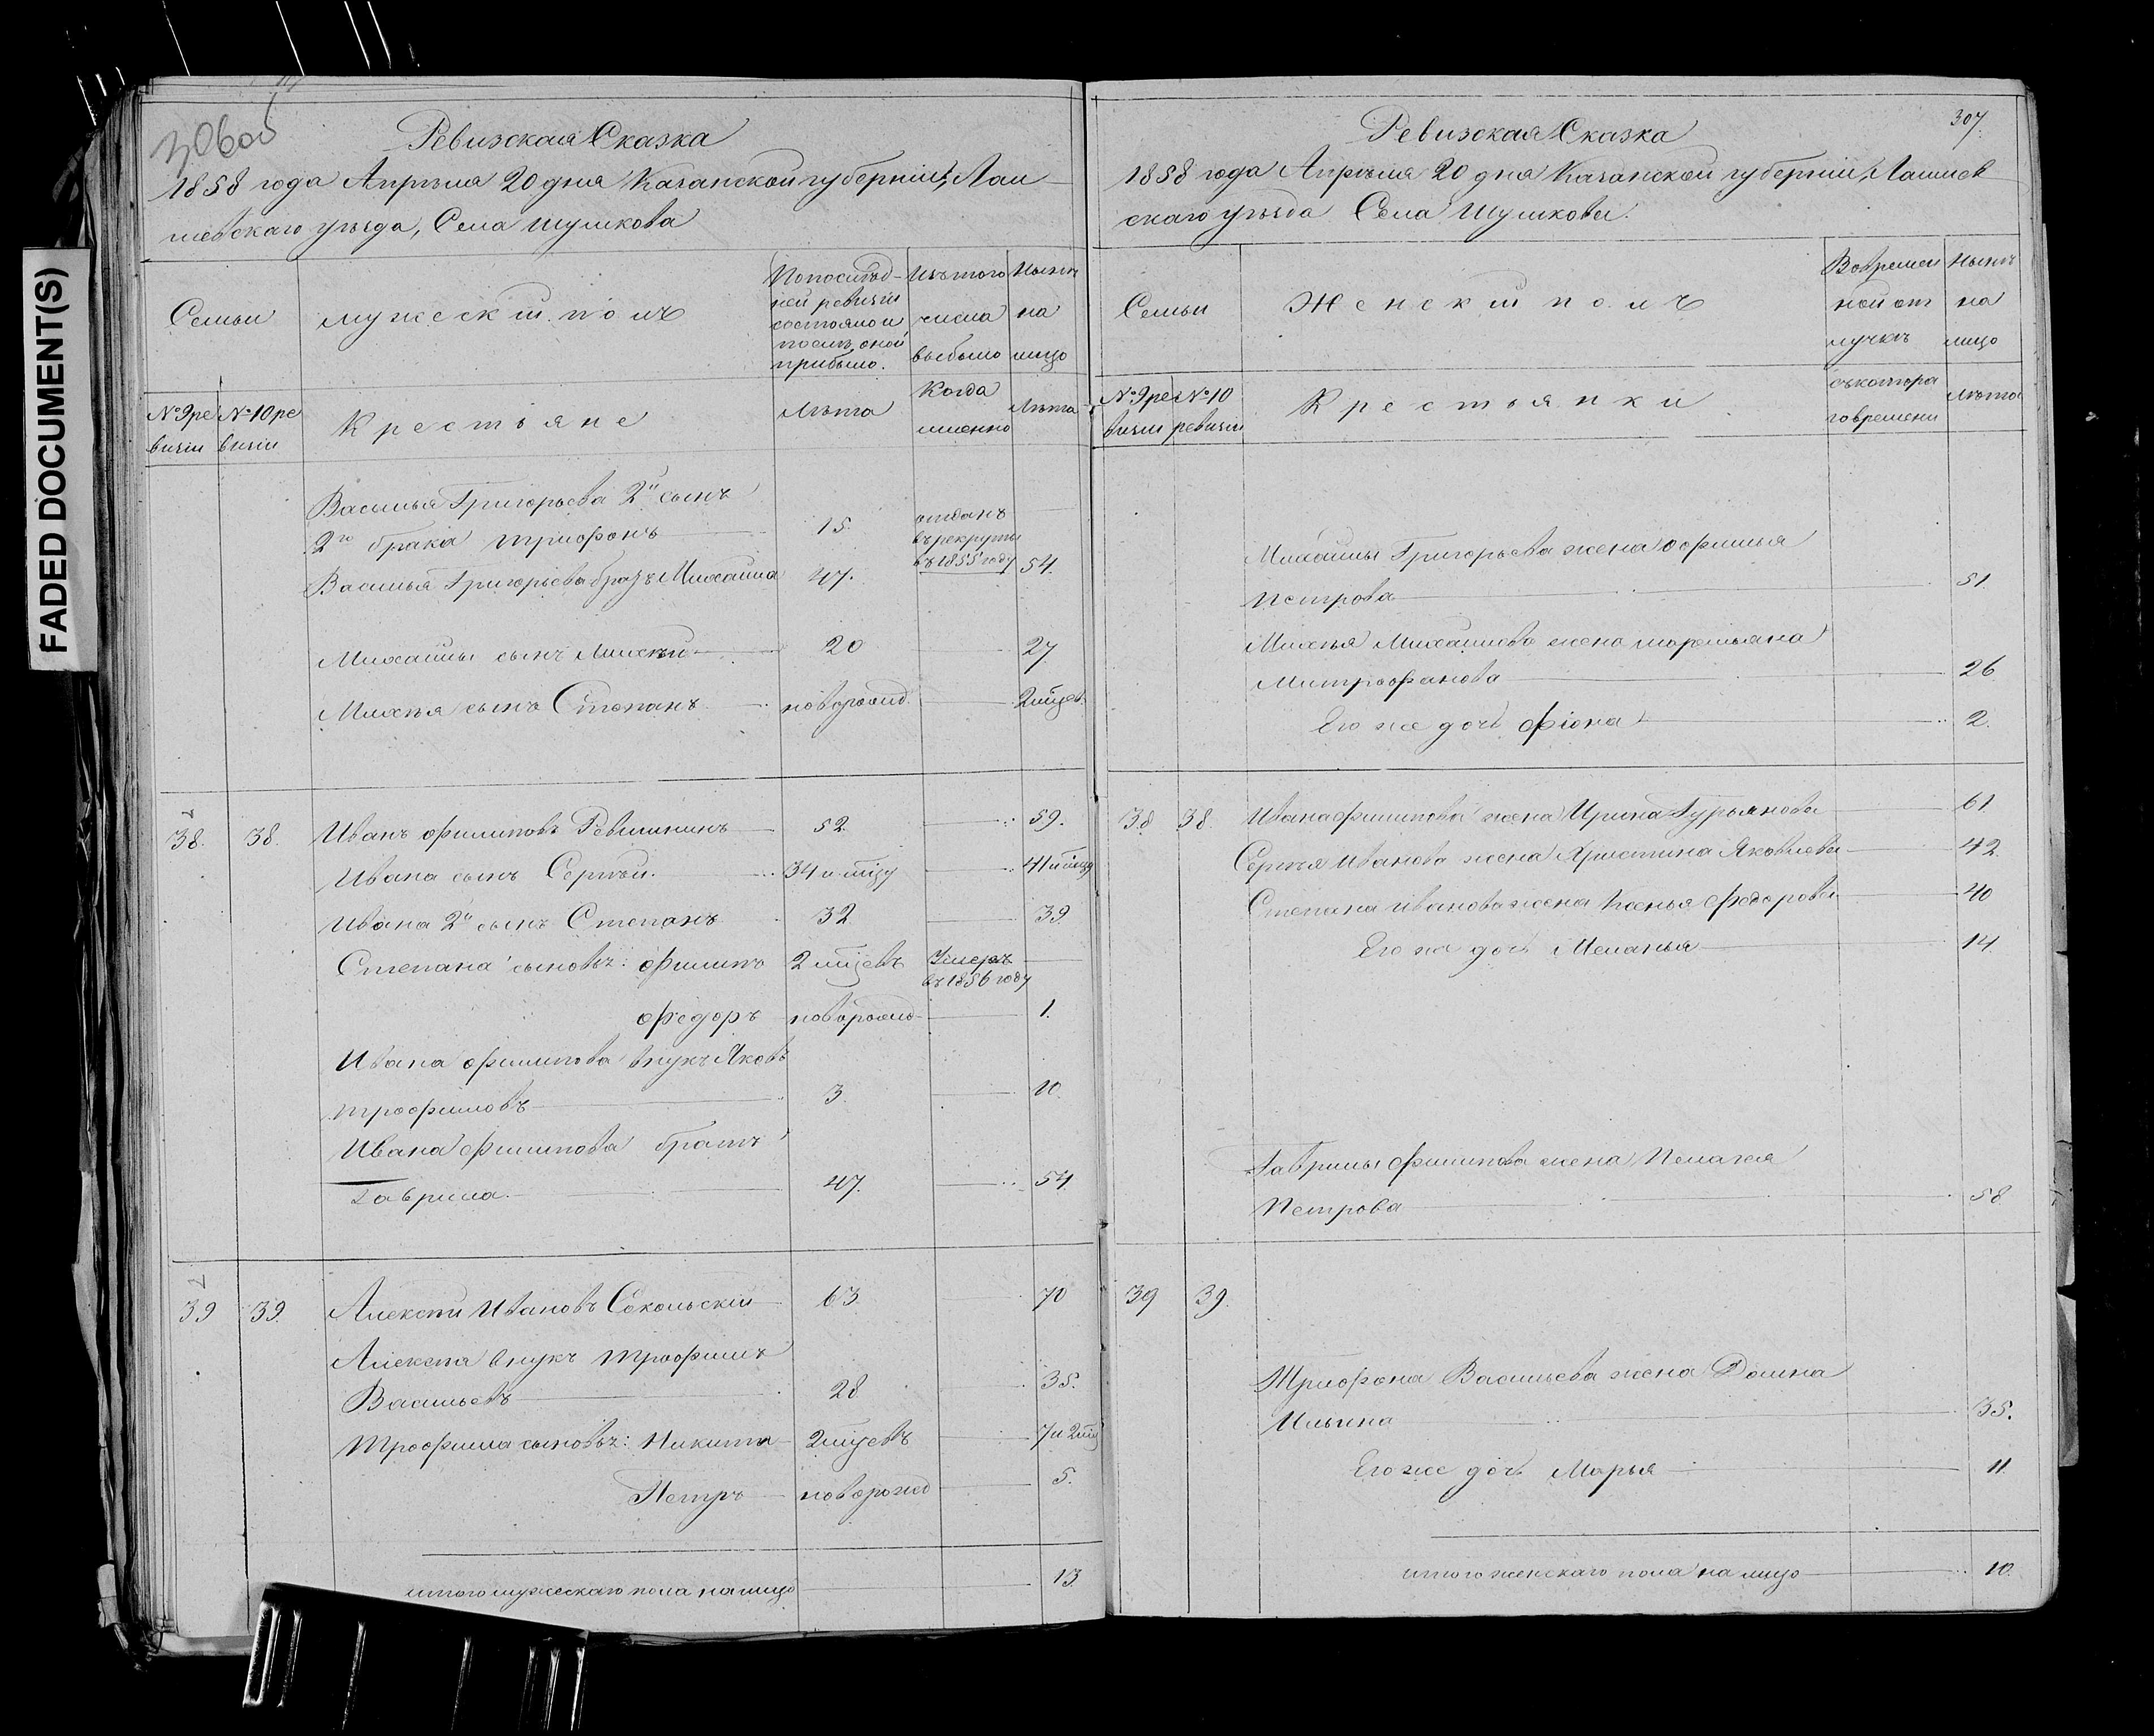 FADED DOCUMENT(S)
306об
Ревизская Сказка
1858 года Апрѣля 20 дня Казанской губерніи, Лаи
шевскаго уѣзда, Села Шумкова
Семьи
мужескій полъ
Попослѣд-
ней ревизіи
состояло и
послѣ оной
прибыло.
Изъ того
числа
выбыло
Нынѣ
на
лицо
№ 9 ре
визіи
№ 10 ре
визіи
Крестьяне
Лѣта
Когда
именно
Лѣта
Василья Григорьева 2й сынъ
2го брака Трифонъ 15 отданъ
въ рекруты
въ 1855 году
Василья Григорьева братъ Михаила 47. 54.
Михайлы сынъ Михѣй 20 27
Михѣя сынъ Степанъ новорожд. 2 мѣсев.
38. 38. Иванъ Филиповъ Ревшинъ 52. 59.
Ивана сынъ Сергѣй. 34 и мѣсу 41 и мѣсу
Ивана 2й сынъ Степанъ 32 39
Степана сыновья: Филипъ 2 мѣсевъ Умеръ
въ 1856 году
Федоръ новорожд 1.
Ивана Филипова внукъ Яковъ
Трофимовъ 3. 10.
Ивана Филипова братъ
Гаврила. 47. 54
39 39. Алексѣй Ивановъ Сокольскій 63 70
Алексѣя внукъ Трофимъ
Васильевъ 28 35.
Трофима сыновья: Никита 2 мѣсевъ 7 и 2 мѣс
Петръ новорожд 5.
итого мужескаго пола налицо 13.
307.
Ревизская Сказка
1858 года Апрѣля 20 дня Казанской губерніи, Лаишев
скаго уѣзда Села Шумкова.
Семьи
Женскій полъ
Во времен
ной от
лучкѣ
Нынѣ
на
лицо
№ 9 ре
визіи
№ 10
ревизіи
Крестьянки
съ котора
го времени
лѣта
Михайлы Григорьева жена Офимья
Петрова 51.
Михѣя Михайлова жена Маремьяна
Митрофанова 26
Его же дочь Фіона 2.
38 38. Ивана Филипова жена Ирина Гурьянова 61
Сергѣя Иванова жена Христина Яковлева 42
Степана Иванова жена Ксенья Федорова 40
Его же дочь Меланья 14.
Гаврилы Филипова жена Пелагея
Петрова 58
39 39.
Трифона Васильева жена Домна
Ильина 35.
Его же дочь Марья 11.
итого женскаго пола на лицо 10.